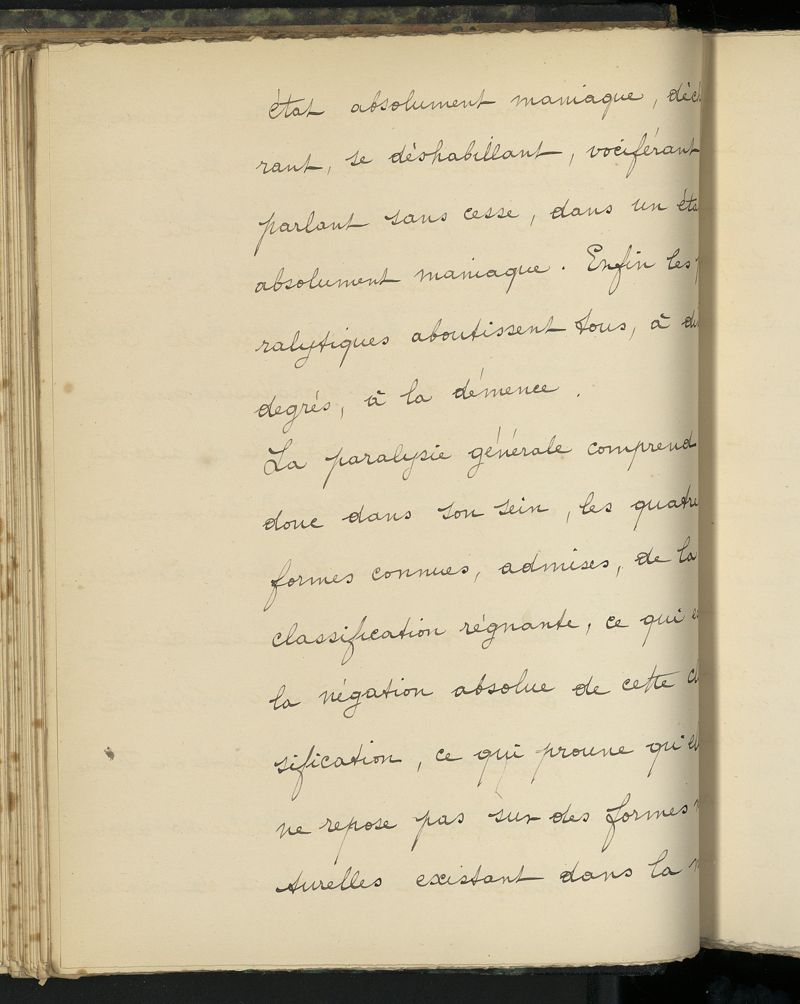 état absolument maniaque, déch
rant, se déshabillant, vociférant
parlant sans cesse, dans un éta
absolument maniaque. Enfin les
ralytiques aboutissent tous, à di
degrés, à la démence.
La paralysie générale comprend
donc dans son sein, les quatre
formes connues, admises, de la
classification régnante, ce qui e
la négation absolue de cette cl
sification, ce qui prouve qu'el
ne repose pas sur des formes n
turelles existant dans la n